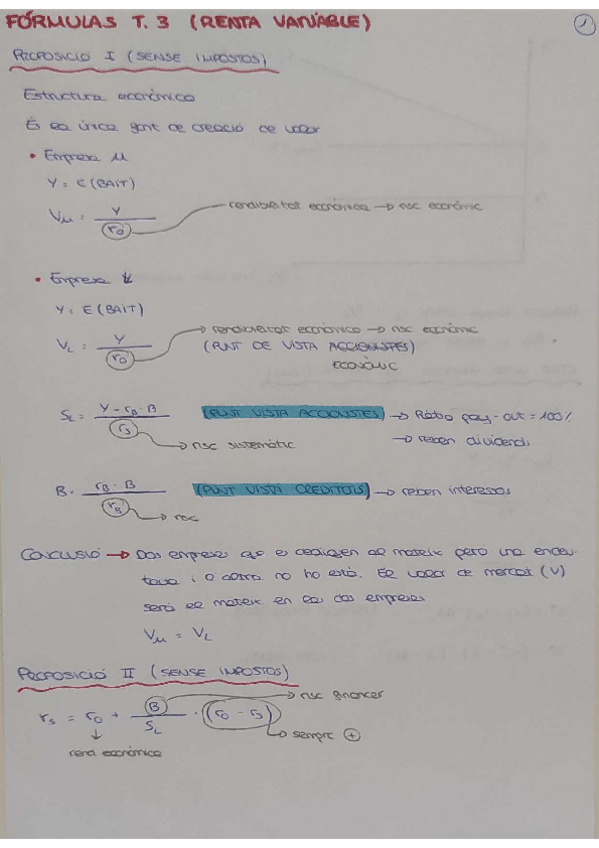 FÓRMULAS T. 3 (RENTA VARIABLE)
1
PROPOSICIÓ I (SENSE IMPOSTOS)
Estructura econòmica
És la única font de creació de valor
• Empresa U
Y = E (BAIT)
Vu = Y / r0 rendibilitat econòmica → risc econòmic
• Empresa L
Y = E (BAIT)
VL = Y / r0 → rendibilitat econòmica → risc econòmic
(PUNT DE VISTA ACCIONISTES)
ECONÒMIC
SL = Y - rB · B / rS (PUNT VISTA ACCIONISTES) → Ràtio pay-out = 100%
→ risc sistemàtic → reben dividends
B = rB · B / rB (PUNT VISTA CREDITORS) → reben interessos
→ risc
CONCLUSIÓ → Dos empreses que es dediquen al mateix però una endeu-
tada i l'altra no ho està. El valor de mercat (V)
serà el mateix en les dos empreses
Vu = VL
PROPOSICIÓ II (SENSE IMPOSTOS)
rS = r0 + B / SL · (r0 - rB) → risc financer
→ sempre +
rend econòmica